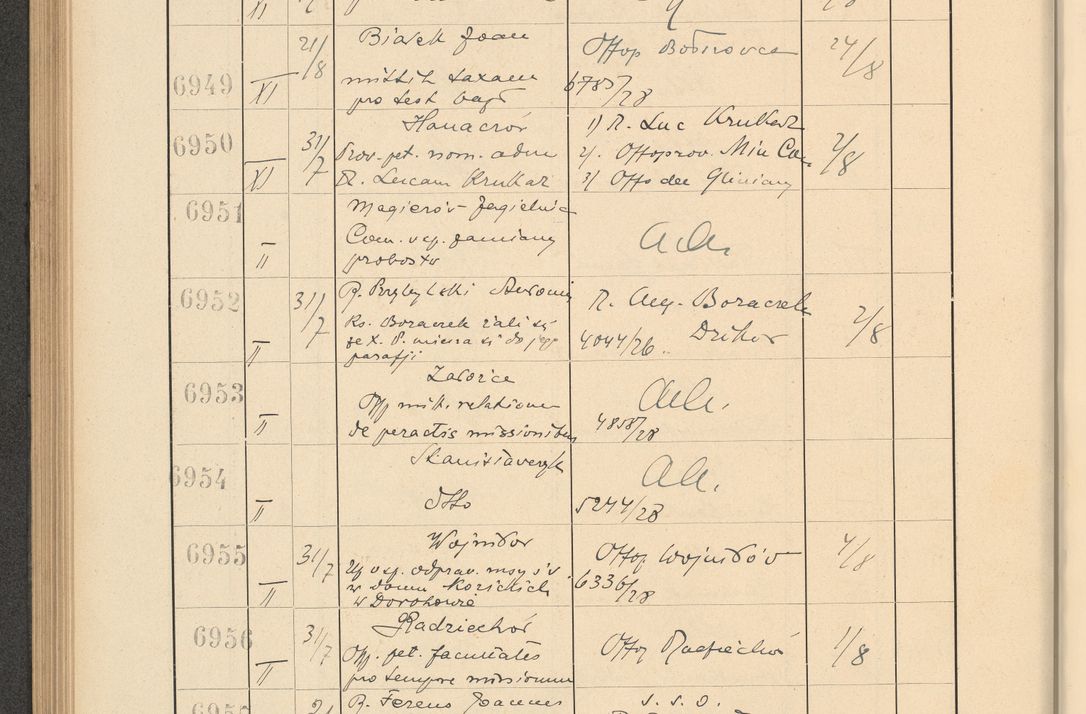 XI
6949 XI 21/8 Białek Joan
mittit taxam
pro test
Offop
6785/28
24/8
6950 XI 31/7 Hanaczów
Prov. pet. nom. adm
R. Lucam Krukar
1) R. Luc Krukar
2). Offoprov. Min
3) Offo dec Gliniany
2/8
6951 II Magierów - Jagielnica
Com. usp. zamiany
probostw
Aa.
6952 II 31/7 R. Przybylski Antonius
Ks. Boraczek żali się
że X. P. miesza się do jego
parafji
R. Aug. Boraczek
4044/26 Dzików
2/8
6953 II
Off mit. relationem
de peractis missionibus
Aa.
4858/28
6954 II Stanisławczyk
dtto
Aa.
5244/28
6955 II 31/7 Wojniłów
Up usp. odpraw. mszy św
w domu Kozickich
w Dorohowie
Offop Wojniłów
6336/28
4/8
6956 II 31/7 Radziechów
Off. pet. facultates
pro tempore missionum
Offop Radziechów
1/8
R. Ferens Joannes
S. S. O.